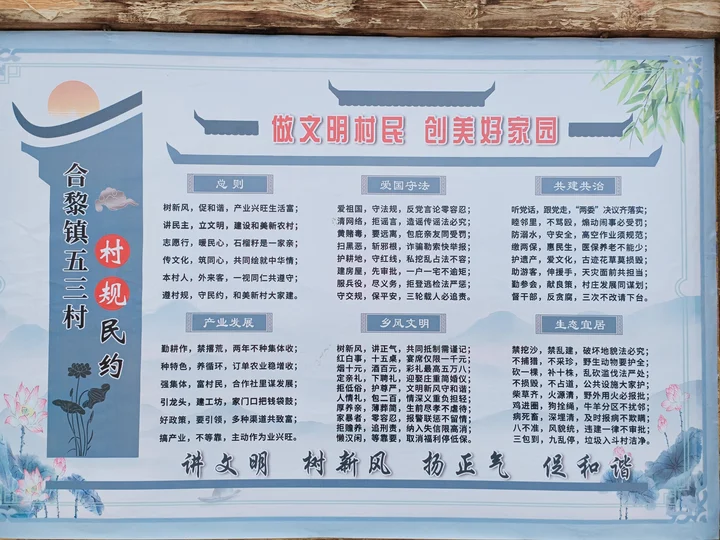 合黎镇五三村
村规民约
做文明村民 创美好家园
总则
树新风，促和谐，产业兴旺生活富；
讲民主，立文明，建设和美新农村；
志愿行，暖民心，石榴籽是一家亲；
传文化，筑同心，共同绘就中华情；
本村人，外来客，一视同仁共遵守；
遵村规，守民约，和美新村大家建。
爱国守法
爱祖国，守法规，反党言论零容忍；
清网络，拒谣言，造谣传谣法必究；
黄赌毒，要远离，包庇亲友同受罚；
扫黑恶，斩邪根，诈骗勒索快举报；
护耕地，守红线，私挖乱占法不容；
建房屋，先审批，一户一宅不逾矩；
服兵役，尽义务，拒登逃检法严惩；
守交规，保平安，三轮载人必追责。
共建共治
听党话，跟党走，“两委”决议齐落实；
睦邻里，不骂殴，煽动闹事必受罚；
防溺水，守安全，高空作业须规范；
缴两保，惠民生，医保养老不能少；
护遗产，爱文化，古迹花草莫损毁；
助游客，伸援手，天灾面前共担当；
勤参会，献良策，村庄发展同谋划；
督干部，反贪腐，三次不改请下台。
产业发展
勤耕作，禁撂荒，两年不种集体收；
种特色，养循环，订单农业稳增收；
强集体，富村民，合作社里谋发展；
引龙头，建工坊，家门口把钱袋鼓；
好政策，要引领，多种渠道共致富；
搞产业，不等靠，主动作为业兴旺。
乡风文明
树新风，讲正气，共同抵制需谨记；
红白事，十五桌，宴席仅限一千元；
烟十元，酒百元，彩礼最高五万八；
定亲礼，下聘礼，迎娶庄重简婚仪；
拒低俗，护尊严，文明新风守和谐；
人情礼，包二百，情深义重负担轻；
厚养亲，薄葬简，生前尽孝不虐待；
家暴者，零容忍，报警联惩不留情；
拒赡养，追刑责，纳入失信限高消；
懒汉闲，等靠要，取消福利停低保。
生态宜居
禁挖沙，禁乱建，破坏地貌法必究；
不捕猎，不采珍，野生动物要护全；
砍一棵，补十株，乱砍滥伐法严处；
不损毁，不占道，公共设施大家护；
柴草齐，火源清，野外用火必追责；
鸡进圈，狗拴绳，牛羊分区不扰邻；
病死畜，深埋清，及时报病不欺瞒；
八不准，风貌统，违建一律不审批；
三包到，九乱停，垃圾入斗村洁净。
讲文明 树新风 扬正气 促和谐